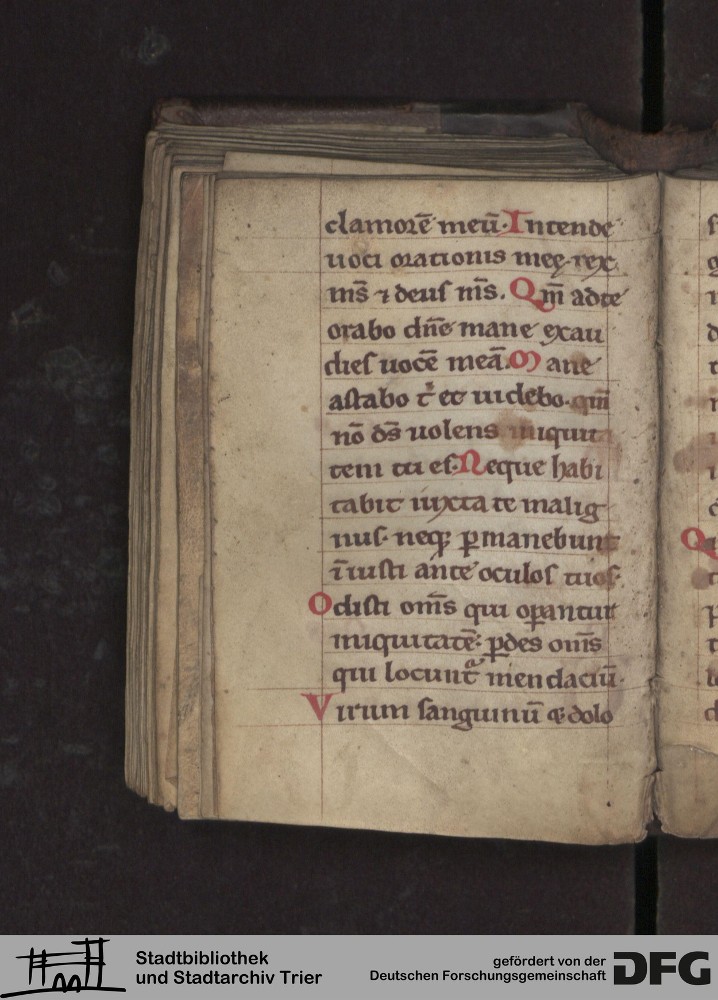 clamorē meū. Intende
uoci orationis meę. rex
ms̄ ⁊ deus ms̄. Qm̄ ad te
orabo dn̄e mane exau
dies uocē meā. Mane
astabo t̓ et uidebo. qm̄
nō ds̄ uolens iniquita
tem tu es. Neque habi
tabit iuxta te malig
nus. neq; ꝑmanebunt
īiusti ante oculos tuos.
Odisti om̄s qui oꝑantur
iniquitatē: ꝑdes om̄s
qui locunt̄ mendaciū.
Virum sanguinū & dolo
Stadtbibliothek
und Stadtarchiv Trier
gefördert von der
Deutschen Forschungsgemeinschaft
DFG